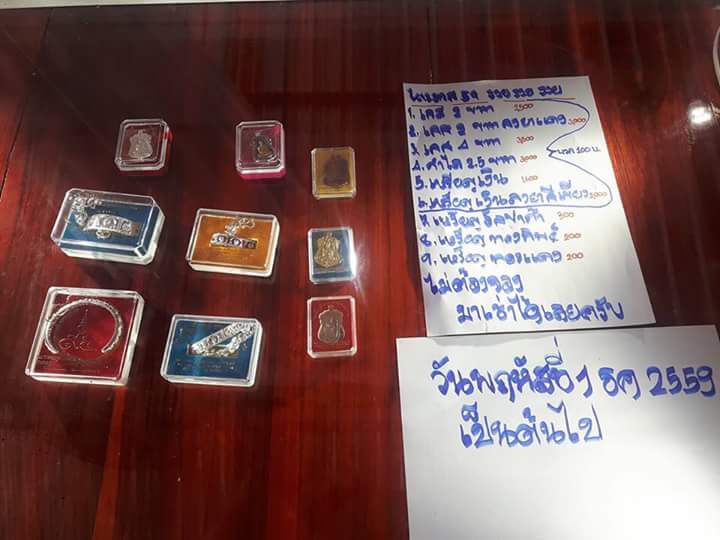 1. เลส 2 บาท 2500
2. เลส 2 บาท ลงยาแดง 3,000
3. เลส 4 บาท 3600
4. กำไล 2.5 บาท 3000
5. เหรียญเงิน 1,100
6. เหรียญเงินลงยาสีเขียว 2,000
100 บ
7. เหรียญอัลปาก้า 300
8. เหรียญทองทิพย์ 200
9. เหรียญทองแดง 200
ไม่ต้องจอง
มาเช่าได้เลยครับ
วันพฤหัสที่ 1 ธค 2559
เป็นต้นไป